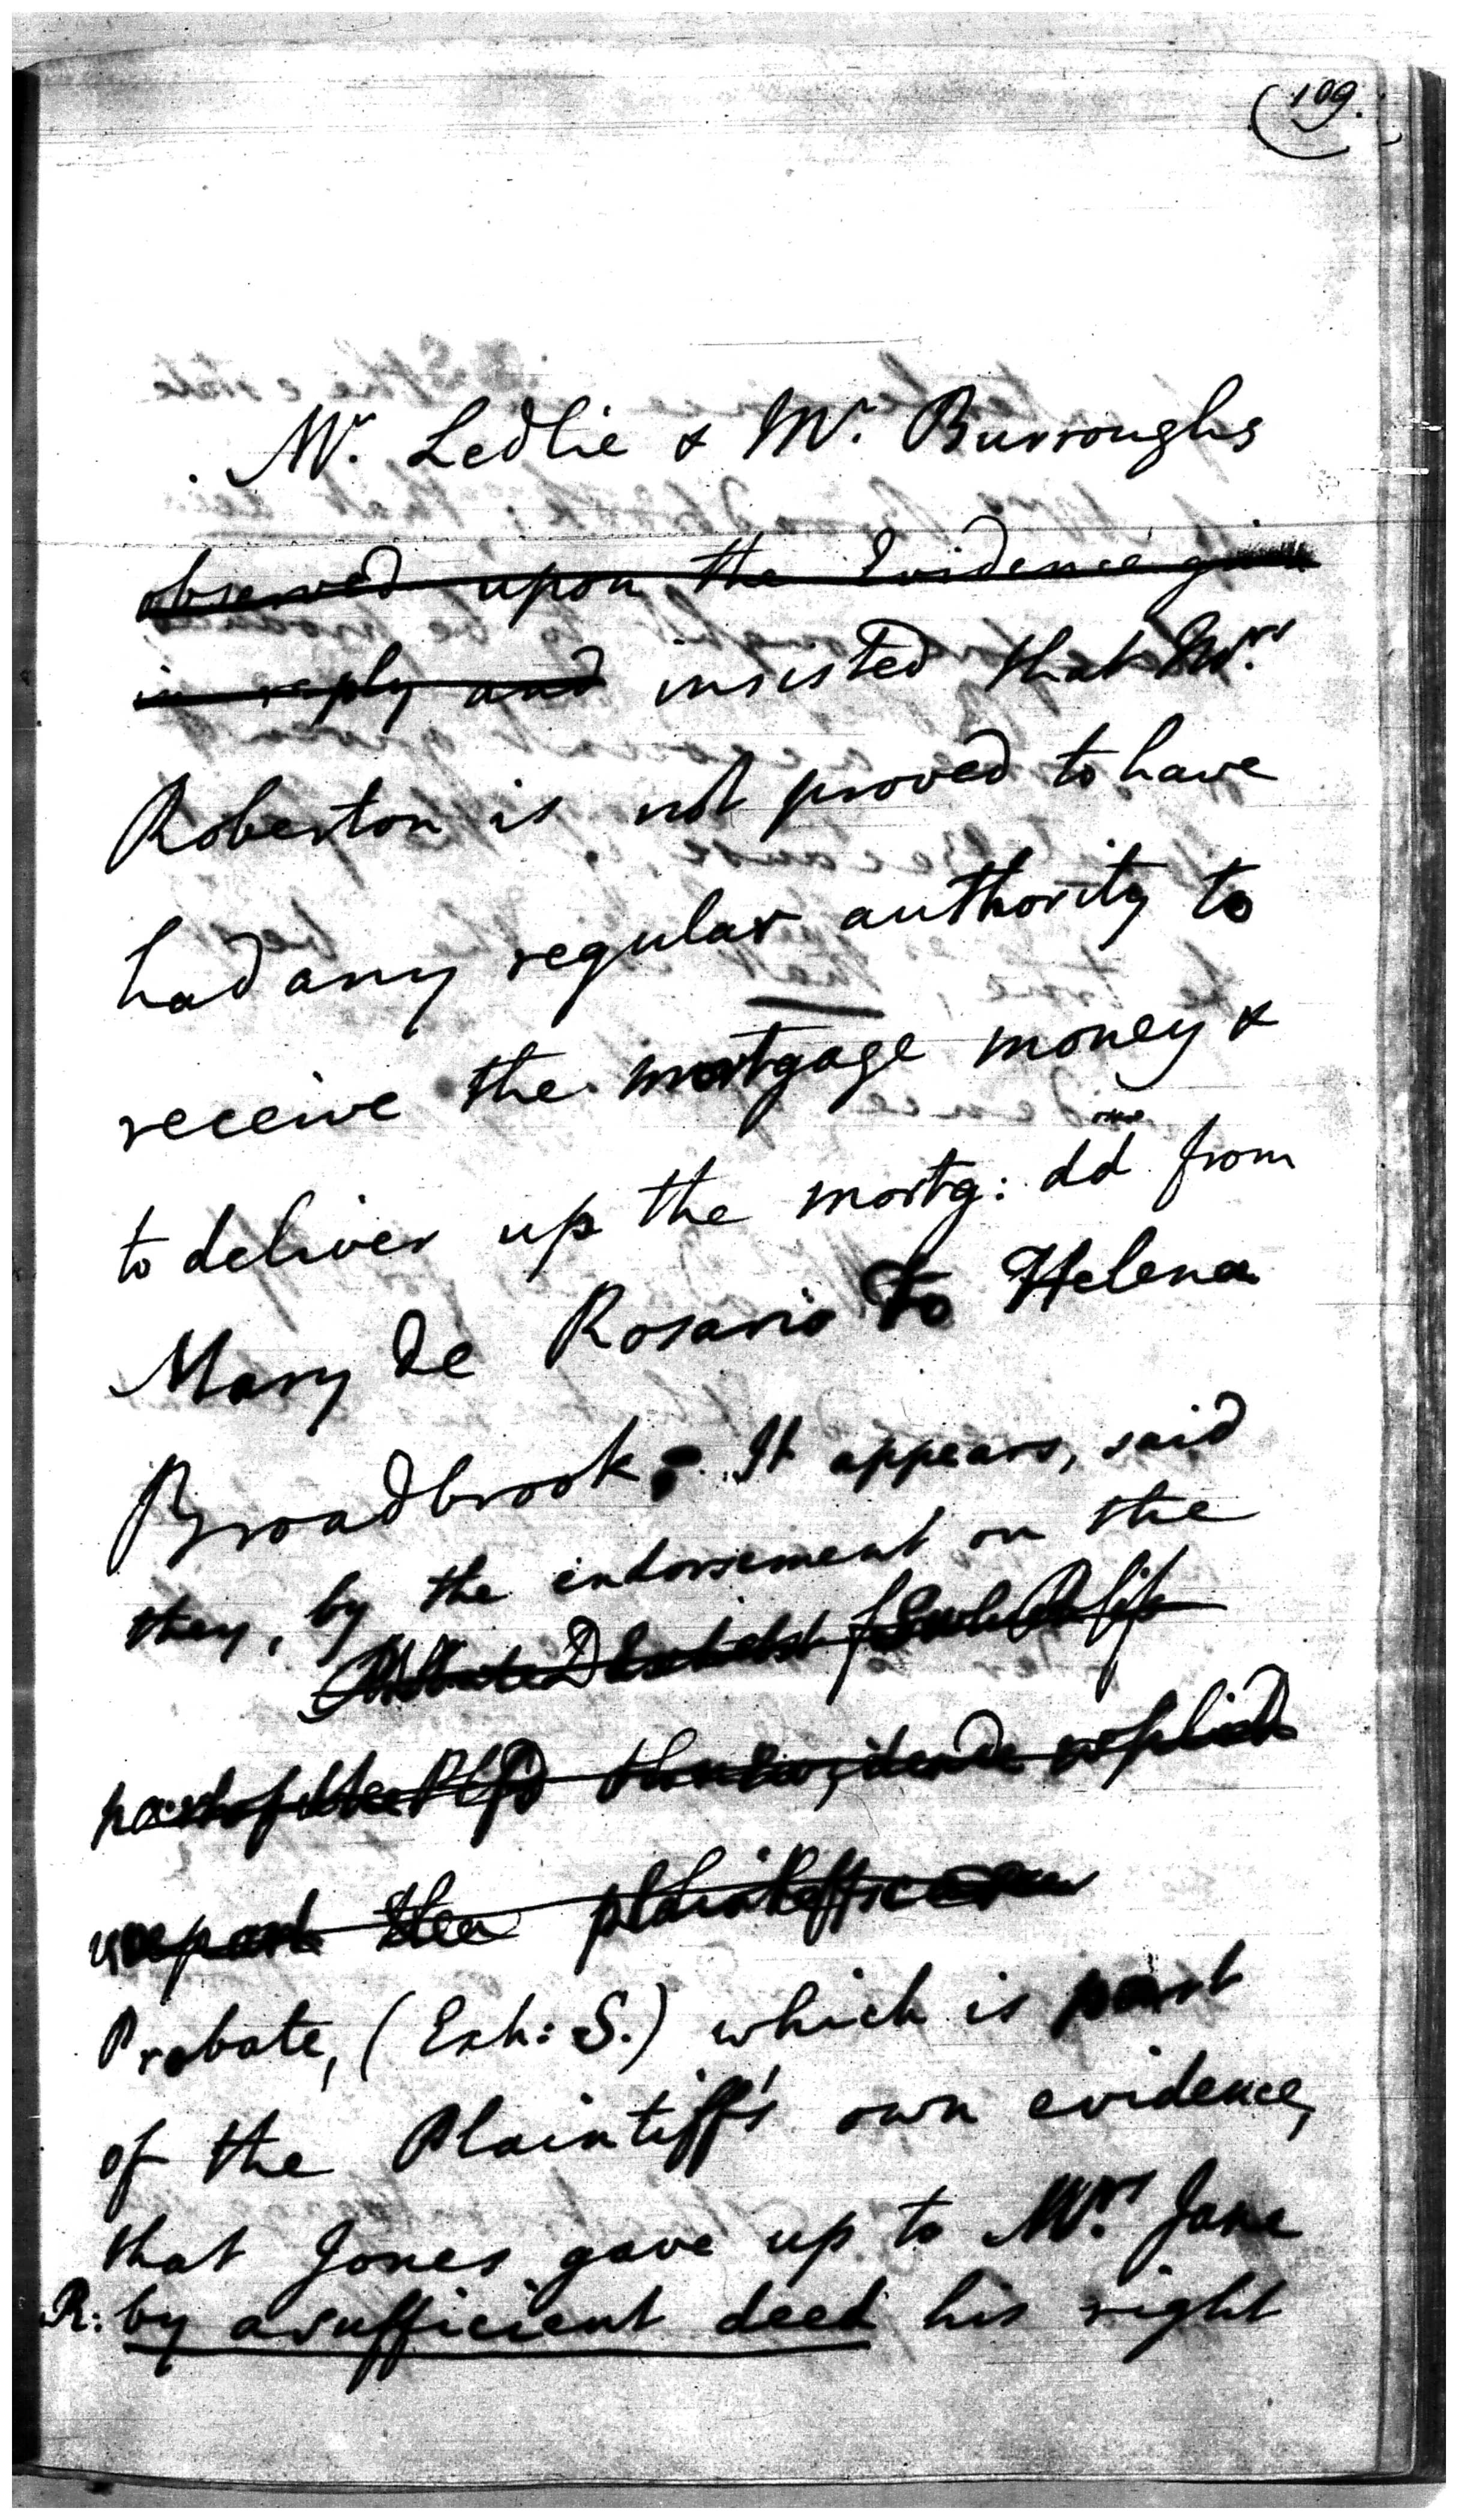 109.
Mr. Ledlie & Mr. Burroughs
observed upon the Evidence given
in reply and insisted that Mrs.
Roberton is not proved to have
had any regular authority to
receive the mortgage money &
to deliver up the mortg: dd from
Mary de Rosario to Helena
Broadbrook. It appears, said
they, by the endorsement on the
part of the
upon the plaintiff
Probate, (Exh: S.) which is part
of the Plaintiff's own evidence,
that Jones gave up to Mrs. Jane
R: by a sufficient deed his right